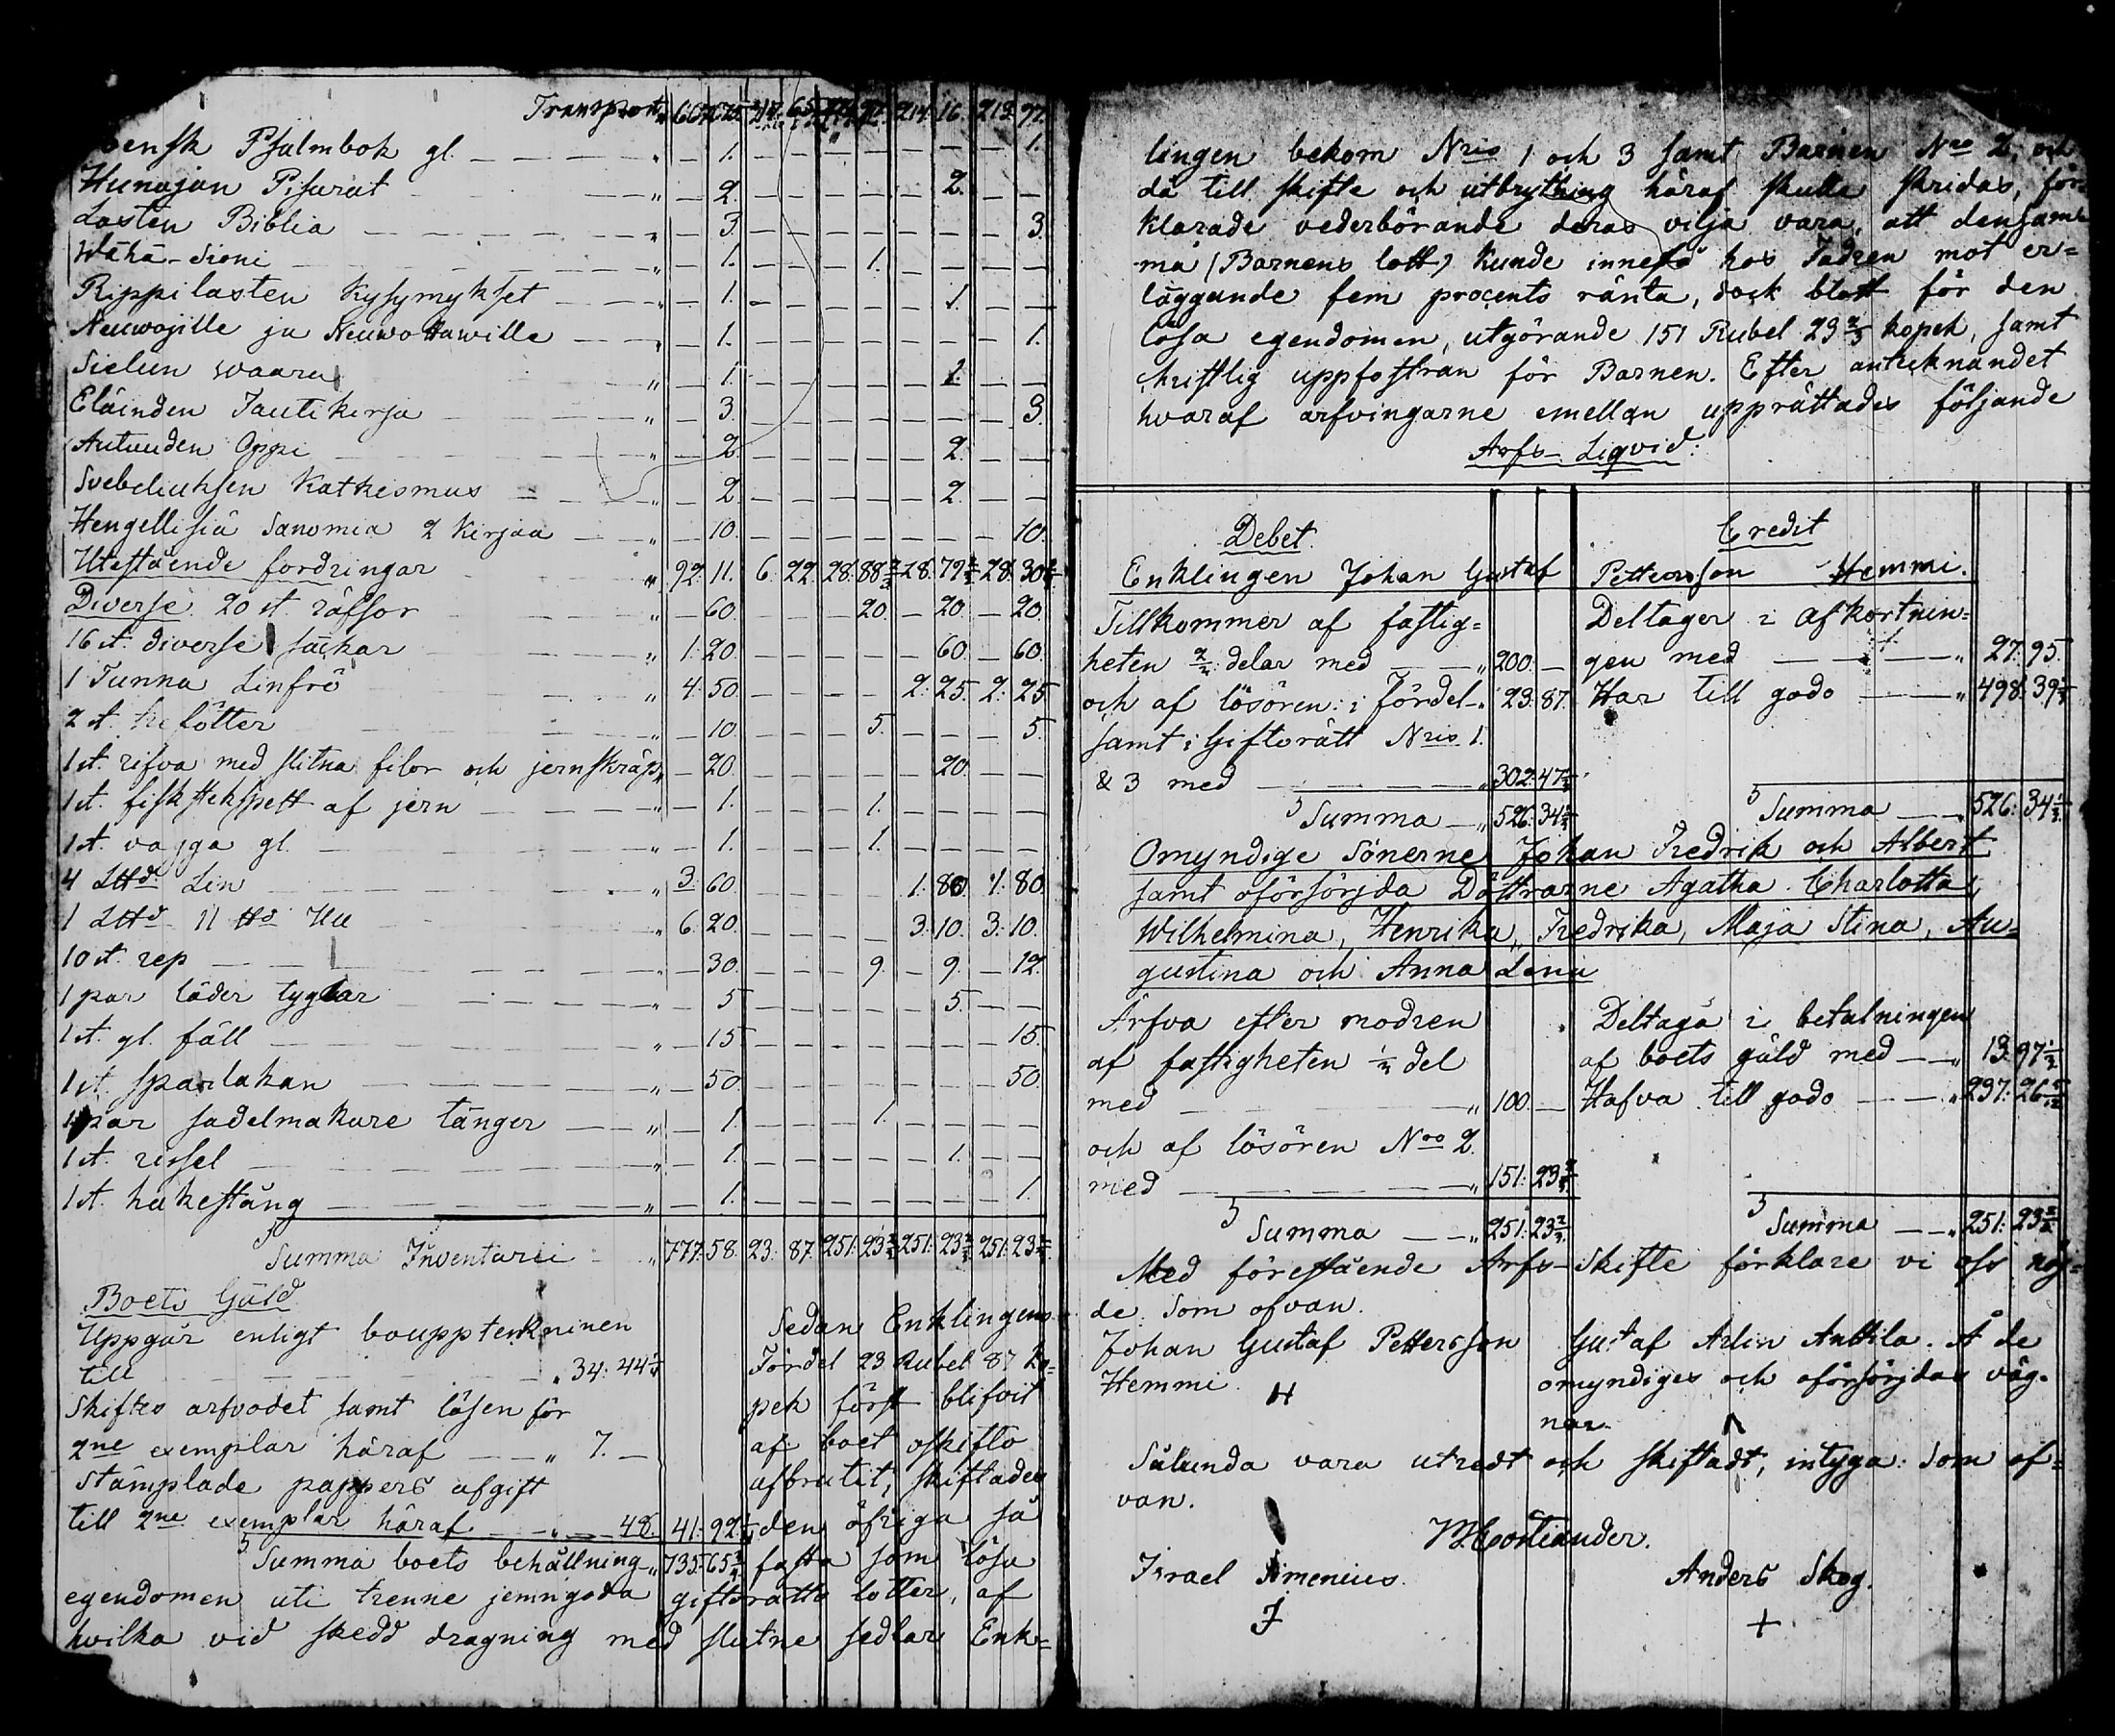 Transport
Psalmbok gl. — — „ — 1. — — — — — — — 1.
Hunajan Pisarat „ — 2. — — — — — 2. — —
Lasten Biblia — — „ — 3. — — — — — — — 3.
Wähä-Sioni — — „ — 1. — — — 1. — — — —
Rippilasten Kysymykset — — „ — 1. — — — — — 1. — —
Neuwojille ja Neuwottawille — — „ — 1. — — — — — — — 1.
Sielun waara „ — 1. — — — — — 1. — —
Eläinden Tautikirja „ — 3. — — — — — — — 3.
Autuuden Oppi — — „ — 2. — — — — — 2. — —
Svebeliuksen Katkesmus — — „ — 2. — — — — — 2. — —
Hengellisiä Sanomia 2 Kirjaa — — „ — 10. — — — — — — — 10.
Utestående fordringar „ 92. 11. 6. 22. 28. 88 28. 79 28. 30
Diverse. 20 st. räfsor „ — 60. — — — 20. — 20. — 20.
16 st. diverse säckar „ 1. 20. — — — — — 60. — 60.
1 Tunna Linfrö „ 4. 50. — — — — 2. 25. 2. 25
2 st. trefötter „ — 10. — — — 5. — — — 5.
1 st. rifva med slitna filor och jernskräp „ — 20. — — — — — 20. — —
1 st. fiskstekspett af jern — — „ — 1. — — — 1. — — — —
1 st. vagga gl. — — „ — 1. — — — 1. — — — —
4 L℔d Lin — — „ 3. 60. — — — — 1. 80. 1. 80.
1 L℔d 11 ℔d Ull „ 6. 20. — — — — 3. 10. 3. 10.
10 st. rep — — „ — 30. — — — 9. — 9. — 12.
1 par läder tyglar — — „ — 5 — — — — — 5. — —
1 st. gl. fäll — — „ — 15 — — — — — — — 15.
1 st. sparlakan — — „ — 50. — — — — — — — 50.
1 par sadelmakare tänger — — „ — 1. — — — 1. — — — —
1 st. — — „ — 1. — — — — — 1. — —
1 st. hakestång — — „ — 1. — — — — — — — 1.
Summa Inventarii „ 777. 58. 23. 87. 251. 23⅔ 251. 23⅔ 251. 23⅔
Boets Gäld
Uppgår enligt bouppteckninen
till „ 34. 44
Skiftes arfvodet samt lösen för
2ne exemplar häraf — — „ 7. —
Stämplade pappers afgift
till 2ne exemplar häraf — „ — 48. 41. 92
Summa boets behållning „ 735. 65
Sedan Enklingens
Fördel 23 Rubel 87 ko=
pek först blifvit
af boet oskifto
afbrutit, skiftades
den öfriga så
fasta som lösa
egendomen uti trenne jemngoda giftorätts lotter, af
hvilka vid skedd dragning med slutne sedlar Enk=
lingen bekom Nris 1 och 3 samt Barnen Nro 2, och
då till skifte och utbrytning häraf skulle skridas, för=
klarade vederbörande deras vilja vara, att densam=
ma (Barnens lott) kunde innestå hos Fadren mot er=
läggande fem procents ränta, dock blott för den
lösa egendomen, utgörande 151 Rubel 23⅔ kopek, samt
christlig uppfostran för Barnen. Efter antecknandet
hvaraf arfvingarne emellan upprättades följande
Arfs-Liqvid:
Debet. Credit
Enklingen Johan Gustaf Pettersson Hemmi.
Tillkommer af fastig= Deltager i afkortnin=
heten ⅔ delar med — — „ 200. — gen med — — „ 27. 95.
och af lösören: i Fördel — „ 23. 87. Har till godo — — „ 498. 39⅓
samt i Giftorätt Nris 1.
& 3 med — — „ 302. 47⅓
Summa — „ 526. 34⅓ Summa — „ 526. 34⅓
Omyndige Sönerne Johan Fredrik och Albert
samt oförsörjda Döttrarne Agatha Charlotta,
Wilhelmina, Henrika, Fredrika, Maja Stina, Au=
gustina och Anna Lena
Ärfva efter modren Deltaga i betalningen
af fastigheten ⅓ del af boets gäld med — — „ 13. 97½
med — — „ 100. — Hafva till godo — — „ 237. 26
och af lösören Nro 2
med — — „ 151. 23⅔
Summa — — „ 251. 23⅔ Summa — — „ 251. 23⅔
Med förestående Arfs-skifte förklare vi oss nöj=
de. Som ofvan.
Johan Gustaf Pettersson Gustaf Arlin Anttila. Å de
Hemmi. omyndiges och oförsörjdas väg=
H nar.
Sålunda vara utredt och skiftadt, intyga: Som of=
van.
Israel Simenius. Anders Skog.
I +